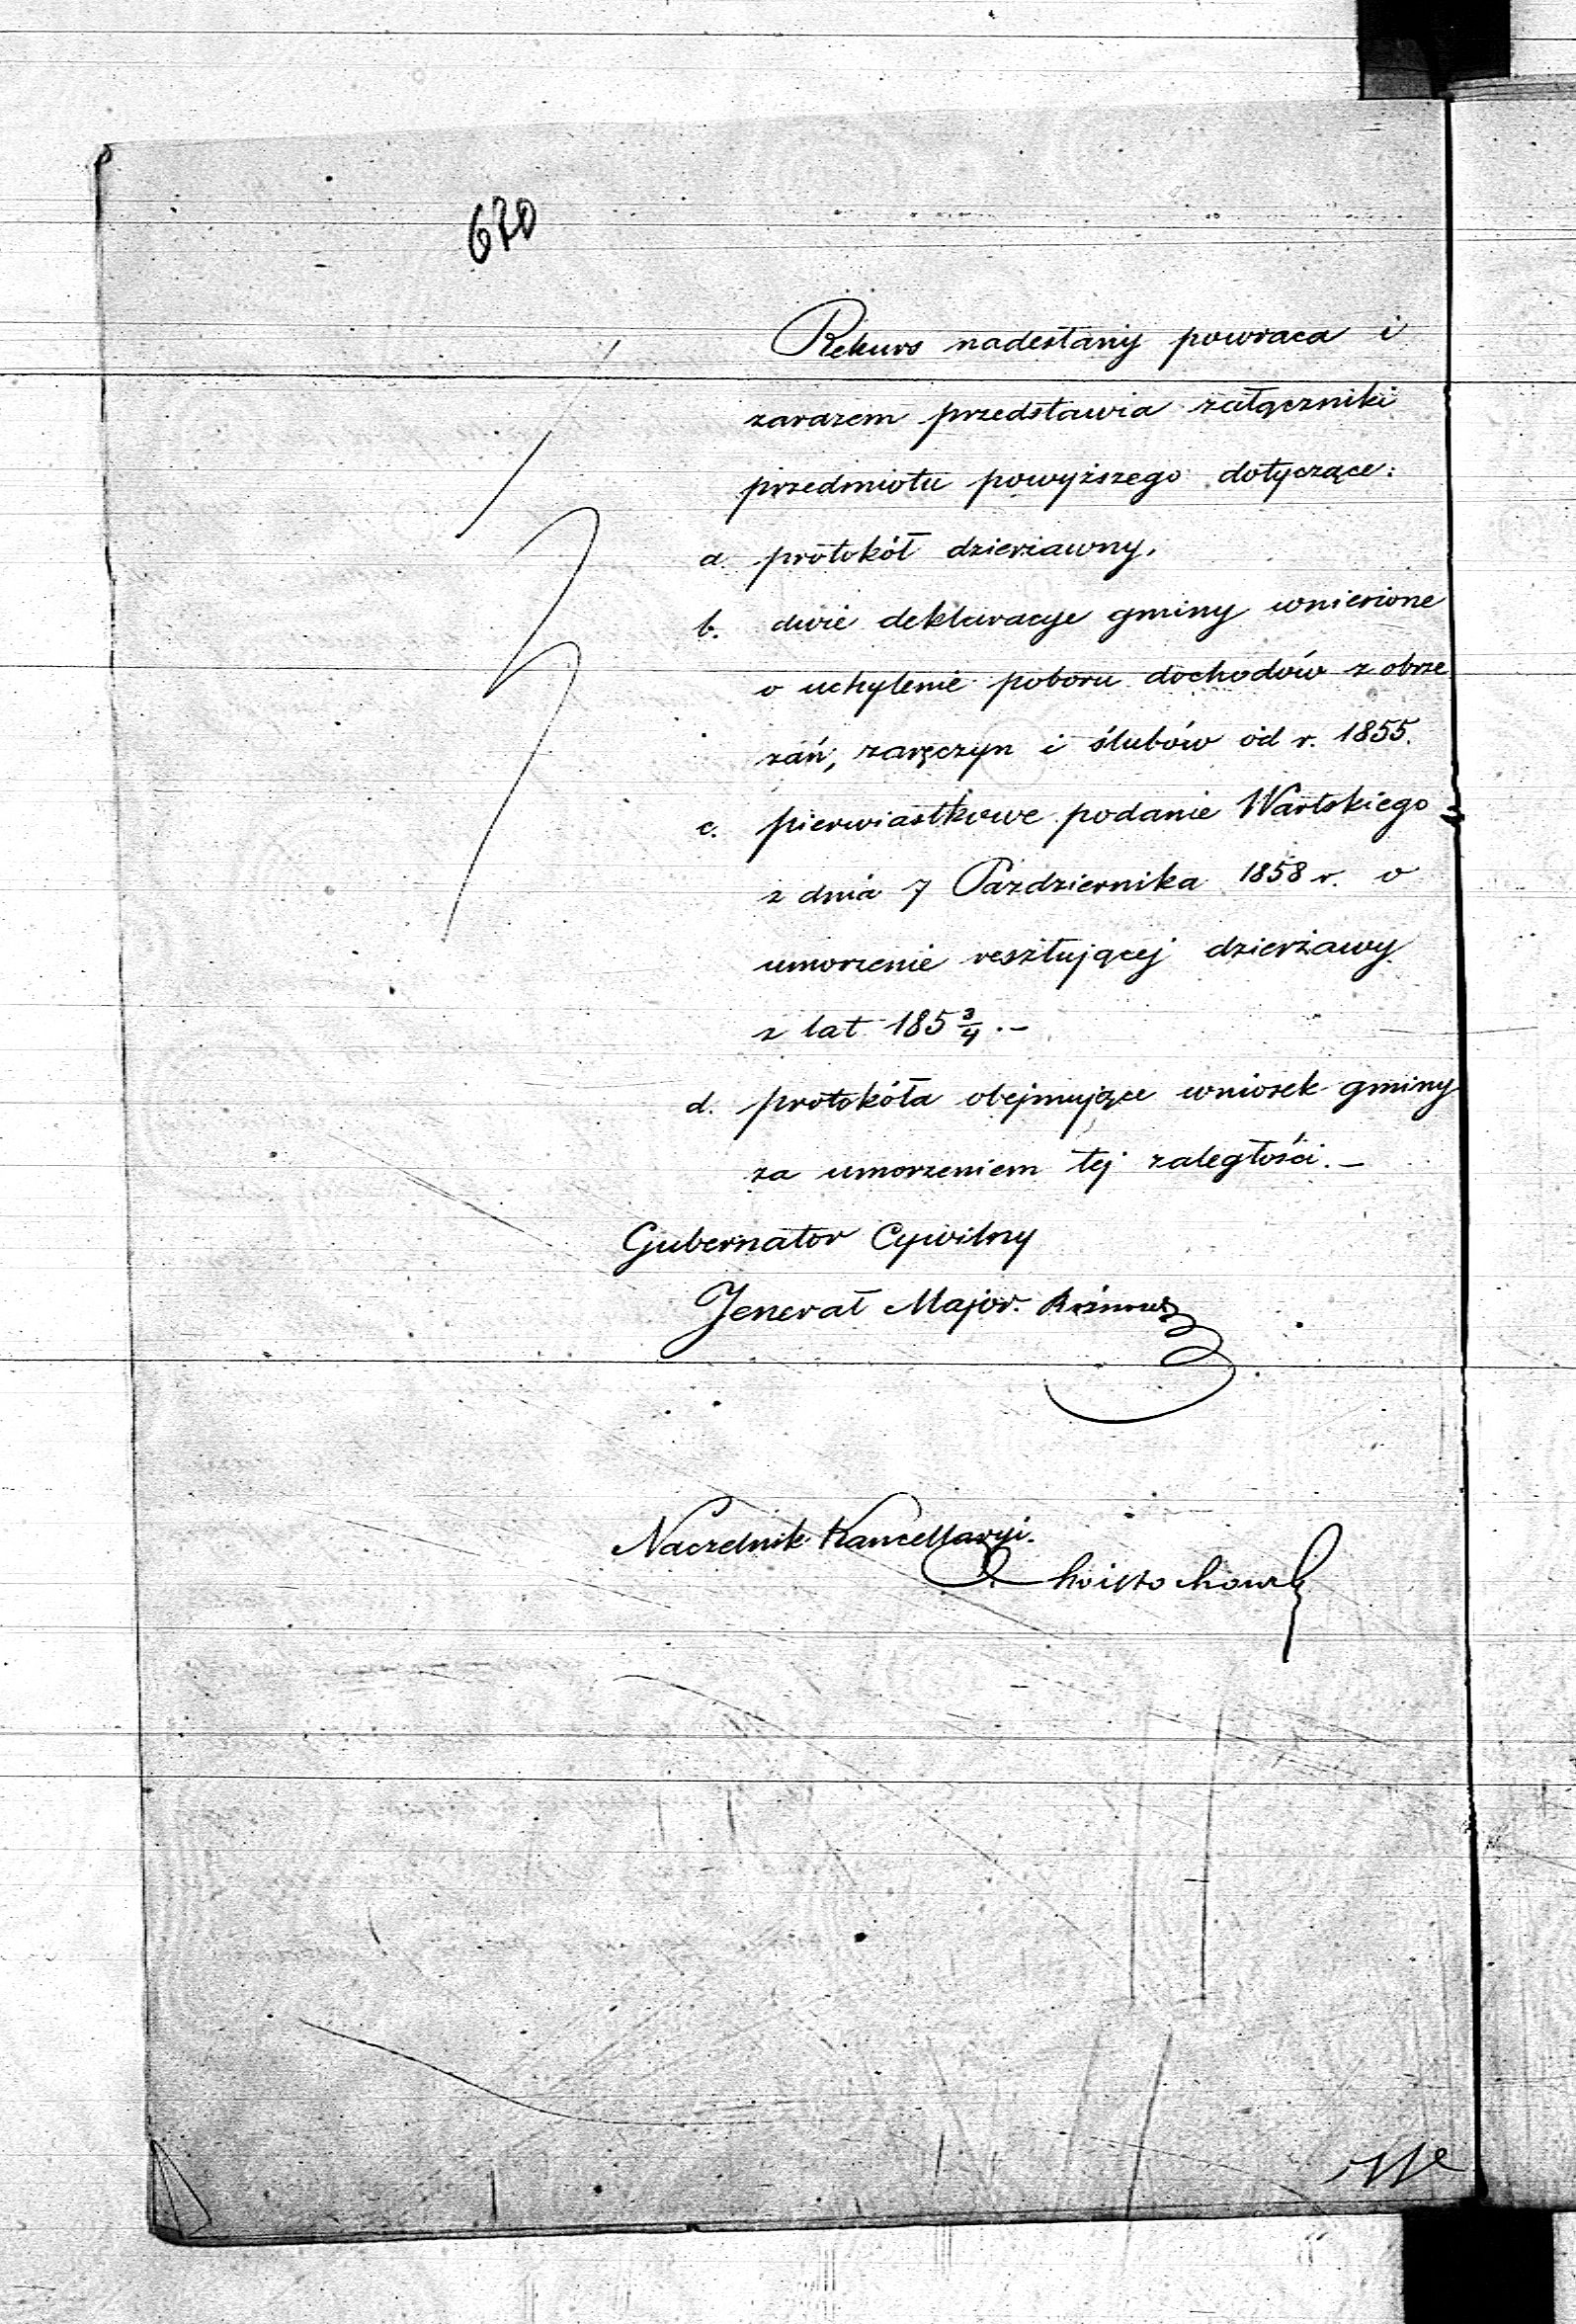 670
Rekurs nadesłany powraca i
zarazem przedstawia załączniki
przedmiotu powyższego dotyczące:
a. protokół dzierżawny,
b. dwie deklaracye gminy wniesione
o uchylenie poboru dochodów z obrze
zań, zaręczyn i ślubów od r. 1855.
c. pierwiastkowe podanie Wartskiego
z dnia 7 Października 1858 r. o
umorzenie resztującej dzierżawy
z lat 185 3/4 . –
d. protokóła obejmujące wniosek gminy
za umorzeniem tej zaległości. –
Gubernator Cywilny
Jenerał Major.
Naczelnik Kancellaryi.